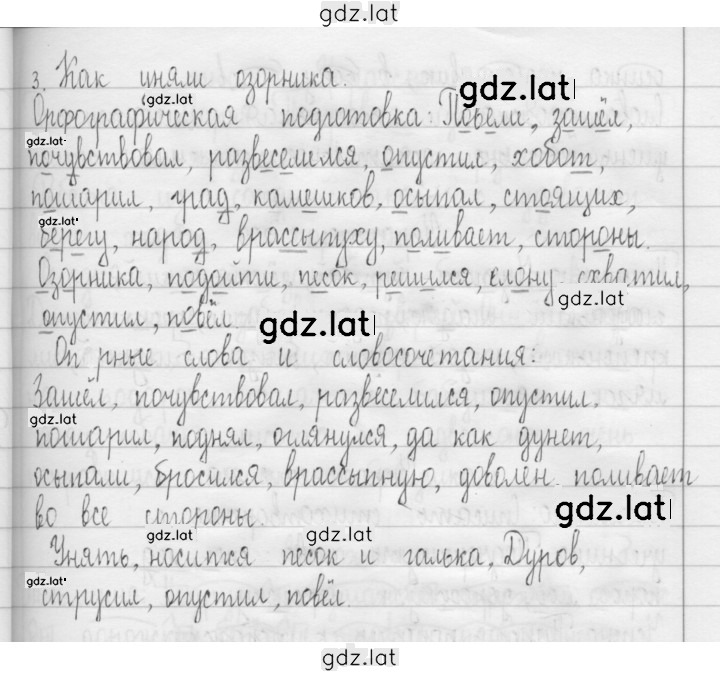 gdz.lat
3. Как уняли озорника.
gdz.lat
gdz.lat
Орфографическая подготовка: Повёл, зашёл,
gdz.lat
почувствовал, развеселился, опустил, хобот,
пошарил, град, камешков, осыпал, стоящих,
gdz.lat
берегу, народ, врассыпуху, поливает, стороны.
Озорника, подойти, песок, решился, слону схватил,
gdz.lat
опустил, повёл.
gdz.lat
Оп рные слова и словосочетания:
Зашёл, почувствовал, развеселился, опустил,
gdz.lat
пошарил, поднял, оглянулся, да как дунет,
осыпали, бросился, врассыпную, доволен поливает
gdz.lat
во все стороны.
gdz.lat
gdz.lat
Унять, носится песок и галька, Дуров,
gdz.lat
струсил, опустил, повёл.
gdz.lat